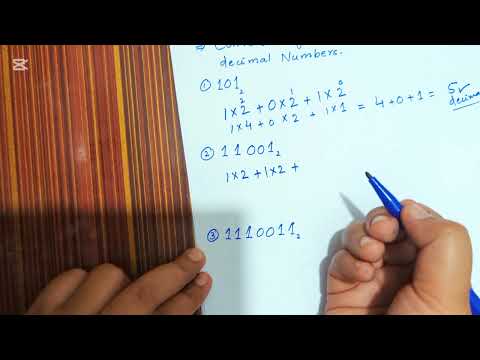 CapCut
decimal Numbers.
① 101₂
1×2² + 0×2¹ + 1×2⁰
1×4 + 0×2 + 1×1 = 4+0+1 = 5
decima
② 11001₂
1×2 + 1×2 +
③ 1110011₂